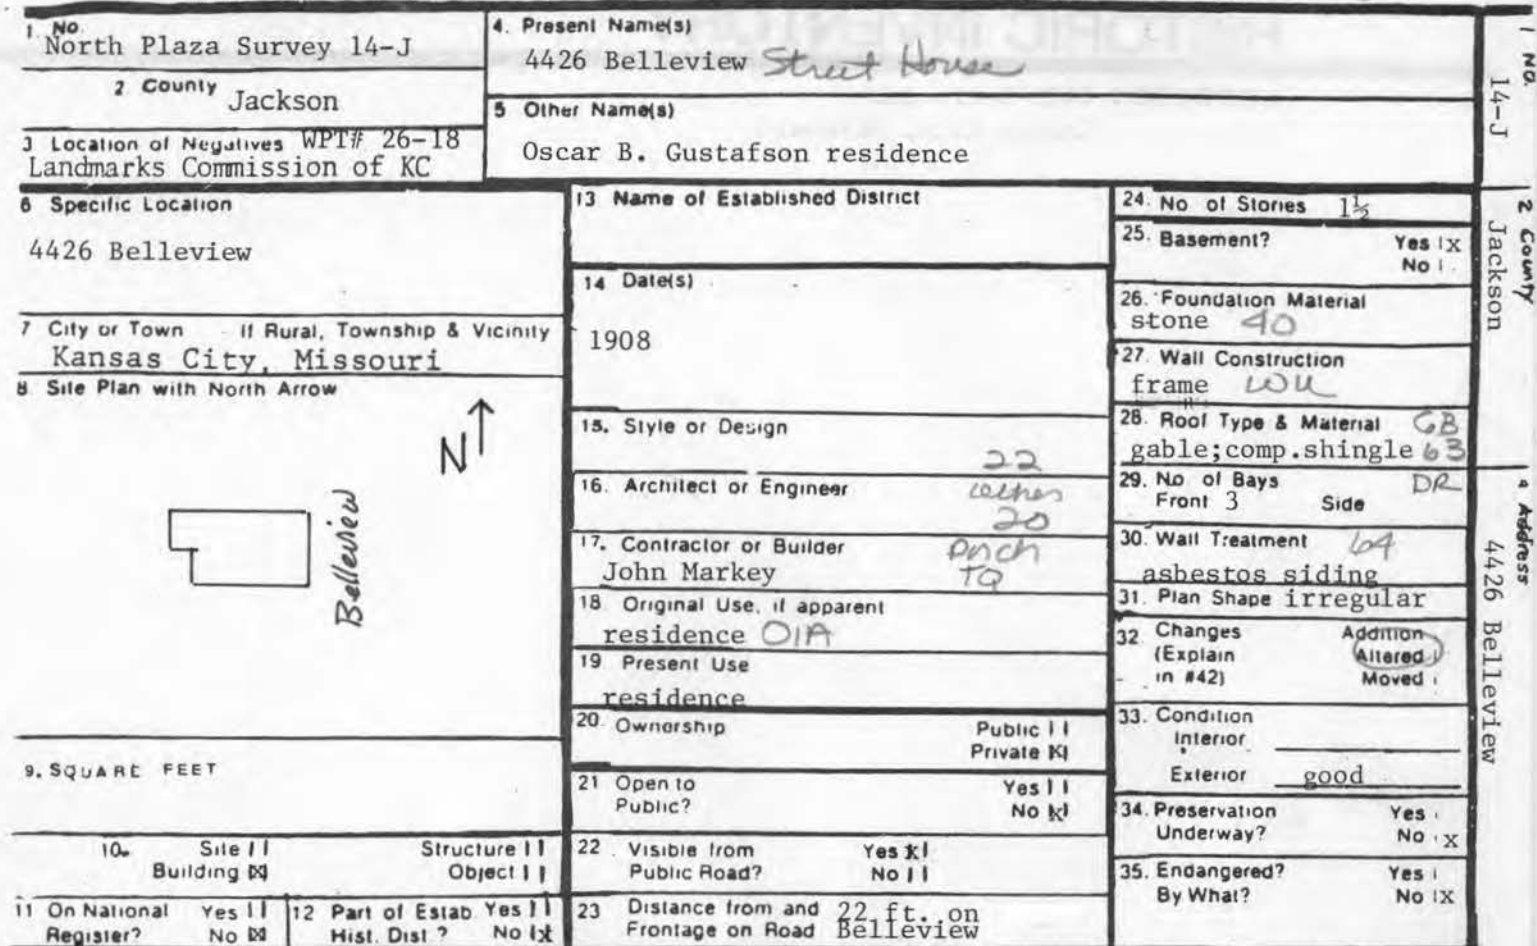 1. No.
North Plaza Survey 14-J
2. County
Jackson
3 Location of Negatives WPT# 26-18
Landmarks Commission of KC
4. Present Name(s)
4426 Belleview Street House
5 Other Name(s)
Oscar B. Gustafson residence
6 Specific Location
4426 Belleview
7 City or Town If Rural, Township & Vicinity
Kansas City, Missouri
8. Site Plan with North Arrow
N
Belleview
9. SQUARE FEET
10. Site
Structure
Building X
Object
11 On National Register? Yes
No X
12 Part of Estab. Hist. Dist.? Yes
No x
13 Name of Established District
14 Date(s)
1908
15. Style or Design
22
16. Architect or Engineer
20
17. Contractor or Builder
John Markey
Porch
TQ
18. Original Use, if apparent
residence 01A
19. Present Use
residence
20. Ownership Public
Private X
21 Open to Yes
Public? No x
22 Visible from Yes x
Public Road? No
23 Distance from and 22 ft. on
Frontage on Road Belleview
24. No. of Stories 1½
25. Basement? Yes x
No
26. Foundation Material
stone 40
27. Wall Construction
frame
28. Roof Type & Material GB
gable;comp.shingle 63
29. No. of Bays DR
Front 3 Side
30. Wall Treatment 64
asbestos siding
31. Plan Shape irregular
32 Changes Addition
(Explain Altered
in #42) Moved
33. Condition
Interior
Exterior good
34. Preservation Yes
Underway? No x
35. Endangered? Yes
By What? No x
1 No.
14-J
2 County
Jackson
4 Address
4426 Belleview